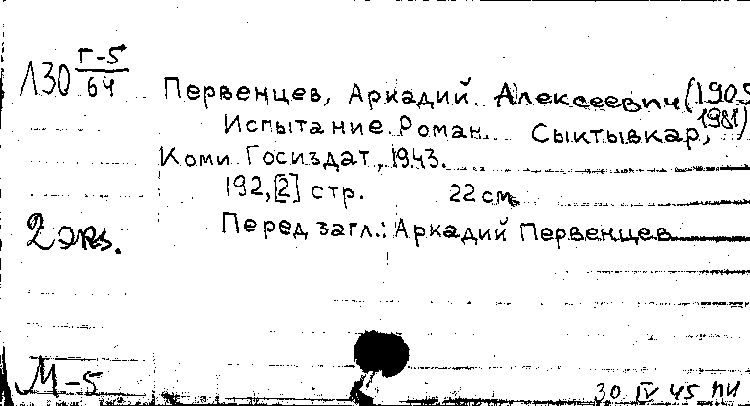 Г-5
Л30 64
Первенцев, Аркадий Алексеевич (1905
1981)
Испытание. Роман. Сыктывкар,
Коми Госиздат, 1943.
192, [2] стр. 22 см.
Перед загл.: Аркадий Первенцев
2 экз.
М-5
30 IV 45